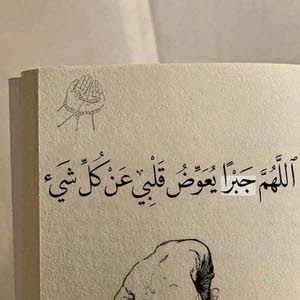 ٱللَّهُمَّ جَبْرًا يُعَوِّضُ قَلْبِيْ عَنْ كُلِّ شَيْء